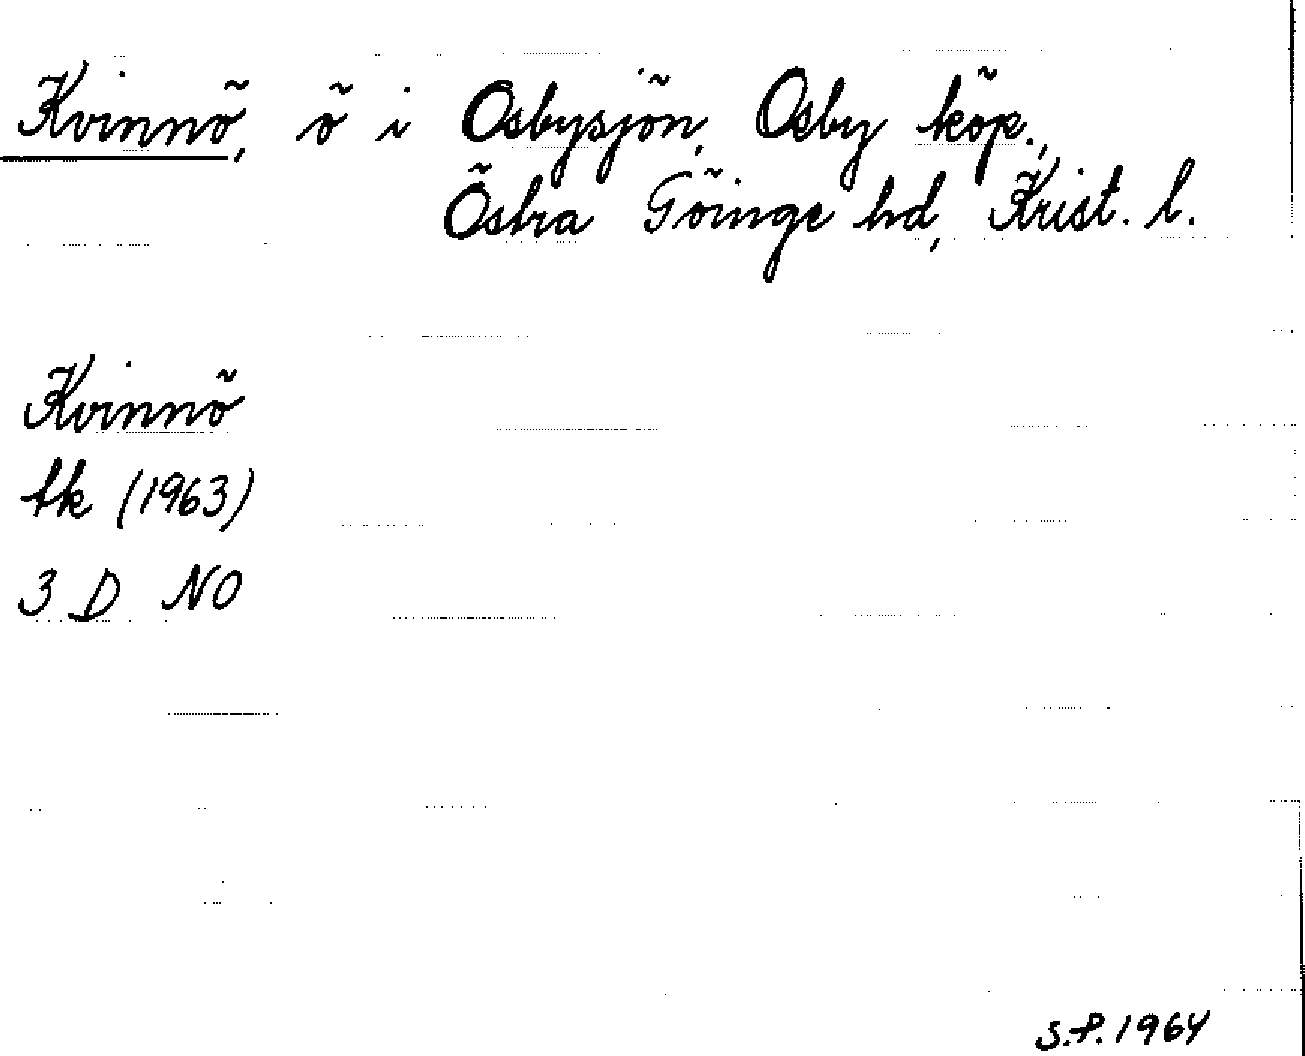 Kvinnö, ö i Osbysjön, Osby köp.,
Östra Göinge hd, Krist. l.
Kvinnö
tk (1963)
3 D NO
S.P. 1964